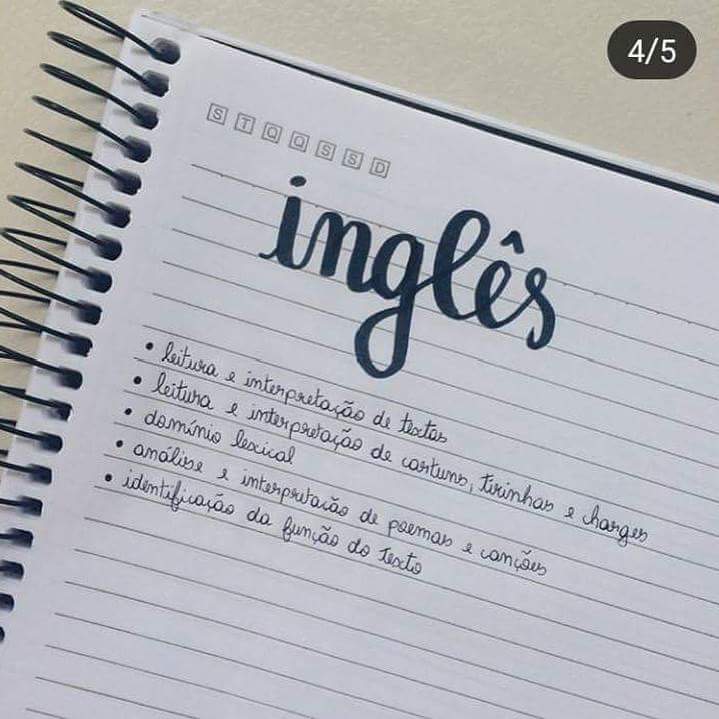 4/5
S T Q Q S S D
inglês
• leitura e interpretação de textos
• leitura e interpretação de cartuns, tirinhas e charges
• domínio lexical
• análise e interpretação de poemas e canções
• identificação da função do texto